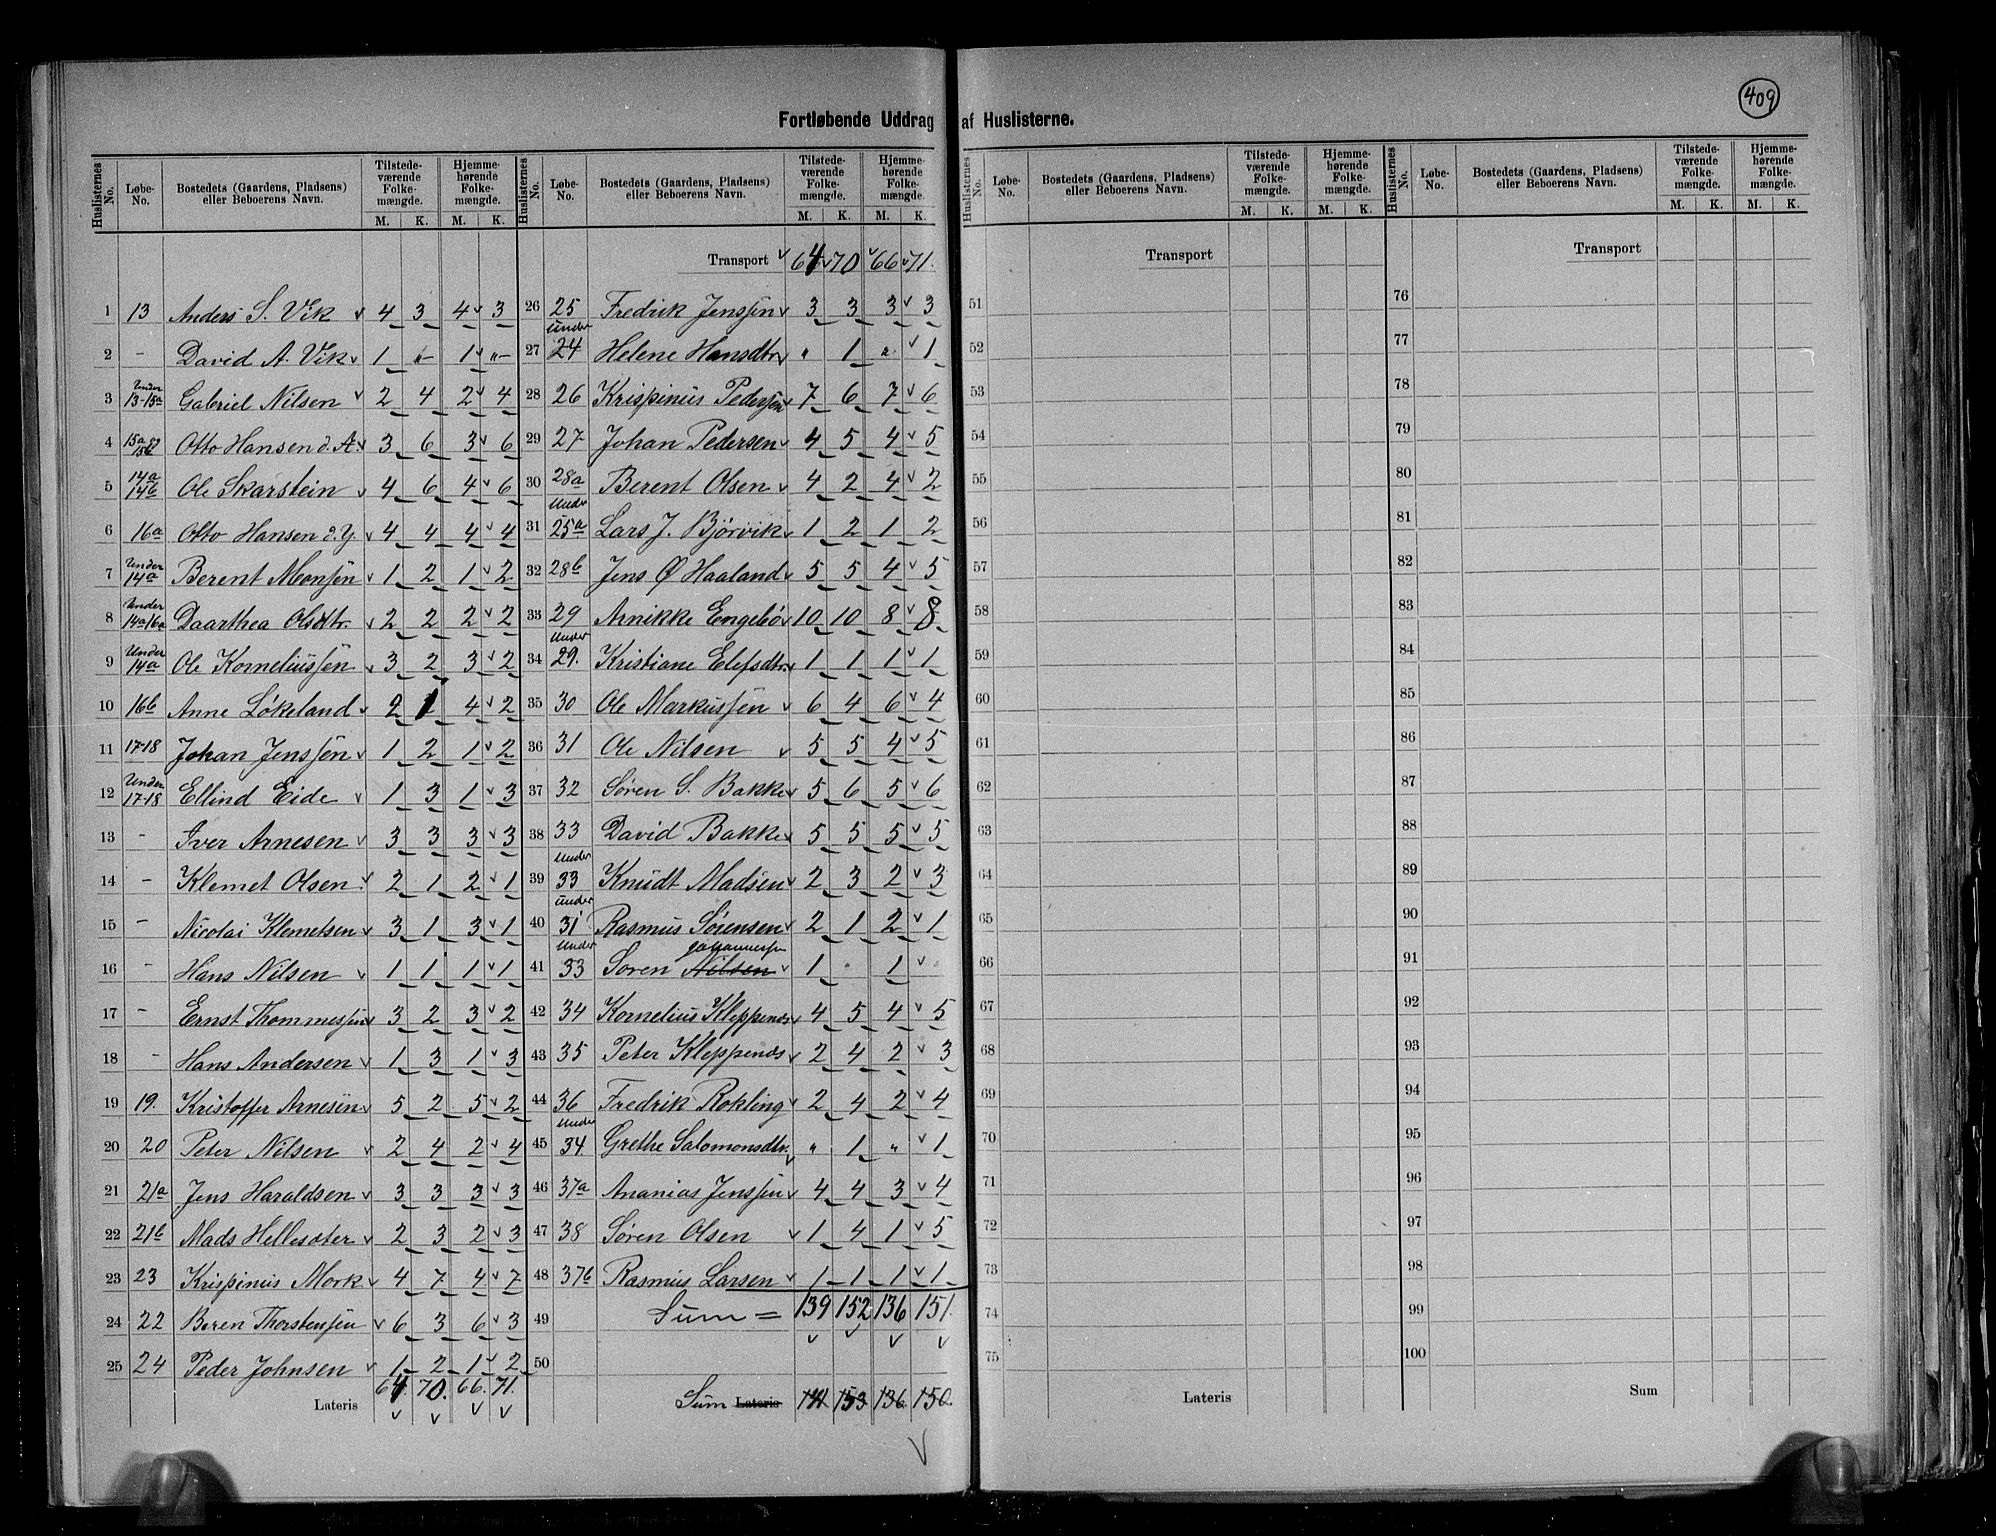 409
Fortløbende Uddrag af Huslisterne.
Huslisternes No. | Løbe-No. | Bostedets (Gaardens, Pladsens) eller Beboerens Navn. | Tilstedeværende Folkemængde. M. K. | Hjemmehørende Folkemængde. M. K.
1 13 Anders S. Vik 4 3 4 3
2 - David A. Vik 1 "- 1 "-
3 Under 13-15a Gabriel Nilsen 2 4 2 4
4 15a og 15b Otto Hansen d. Æ. 3 6 3 6
5 14a 14b Ole Skarstein 4 6 4 6
6 16a Otto Hansen d. Y. 4 4 4 4
7 Under 14a Berent Monsen 1 2 1 2
8 Under 14a 16a Daarthea Olsdtr. 2 2 2 2
9 Under 14a Ole Korneliussen 3 2 3 2
10 16b Anne Løkeland 2 1 4 2
11 17-18 Johan Jenssen 1 2 1 2
12 Under 17-18 Ellind Eide 1 3 1 3
13 - Iver Arnesen 3 3 3 3
14 - Klemet Olsen 2 1 2 1
15 - Nicolai Klemetsen 3 1 3 1
16 - Hans Nilsen 1 1 1 1
17 - Ernst Thommessen 3 2 3 2
18 - Hans Andersen 1 3 1 3
19 19. Kristoffer Arnesen 5 2 5 2
20 20 Peter Nilsen 2 4 2 4
21 21a Jens Haraldsen 3 3 3 3
22 21b Mads Hellesæter 2 3 2 3
23 23 Krispinus Mork 4 7 4 7
24 22 Beren Thorstensen 6 3 6 3
25 24 Peder Johnsen 1 2 1 2
Lateris 64 70. 66. 71.
Huslisternes No. | Løbe-No. | Bostedets (Gaardens, Pladsens) eller Beboerens Navn. | Tilstedeværende Folkemængde. M. K. | Hjemmehørende Folkemængde. M. K.
Transport 64 70 66 71.
26 25 Fredrik Jenssen 3 3 3 3
27 under 24 Helene Hansdtr " 1 " 1
28 26 Krispinus Pedersen 7 6 7 6
29 27 Johan Pedersen 4 5 4 5
30 28a Berent Olsen 4 2 4 2
31 Under 25a Lars J. Bjørvik 1 2 1 2
32 28b Jens Ø Haaland 5 5 4 5
33 29 Arnikke Engebø 10 10 8 8
34 Under 29. Kristiane Elefsdtr 1 1 1 1
35 30 Ole Markussen 6 4 6 4
36 31 Ole Nilsen 5 5 4 5
37 32 Søren S. Bakke 5 6 5 6
38 33 David Bakke 5 5 5 5
39 Under 33 Knudt Madsen 2 3 2 3
40 under 31 Rasmus Sørensen 2 1 2 1
41 Under 33 Søren Nilsen Johannessen 1 1
42 34 Kornelius Kleppenes 4 5 4 5
43 35 Peter Kleppenes 2 4 2 3
44 36 Fredrik Rokling 2 4 2 4
45 Under 34 Grethe Salomonsdtr. " 1 " 1
46 37a Ananias Jenssen 4 4 3 4
47 38 Søren Olsen 1 4 1 5
48 37b Rasmus Larsen 1 1 1 1
49 Sum = 139 152 136 151.
50
Sum Lateris 141 153 136 150.
Huslisternes No. | Løbe-No. | Bostedets (Gaardens, Pladsens) eller Beboerens Navn. | Tilstedeværende Folkemængde. M. K. | Hjemmehørende Folkemængde. M. K.
Transport
51
52
53
54
55
56
57
58
59
60
61
62
63
64
65
66
67
68
69
70
71
72
73
74
75
Lateris
Huslisternes No. | Løbe-No. | Bostedets (Gaardens, Pladsens) eller Beboerens Navn. | Tilstedeværende Folkemængde. M. K. | Hjemmehørende Folkemængde. M. K.
Transport
76
77
78
79
80
81
82
83
84
85
86
87
88
89
90
91
92
93
94
95
96
97
98
99
100
Sum